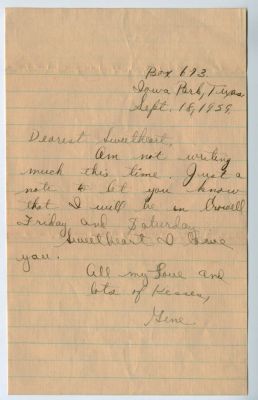 Box 693.
Iowa Park, Texas
Sept. 18, 1939.
Dearest Sweetheart,
Am not writing
much this time. Just a
note to let you know
that I will be in Crowell
Friday and Saturday
Sweetheart I love
you.
All my love and
lots of Kesses,
Gene.